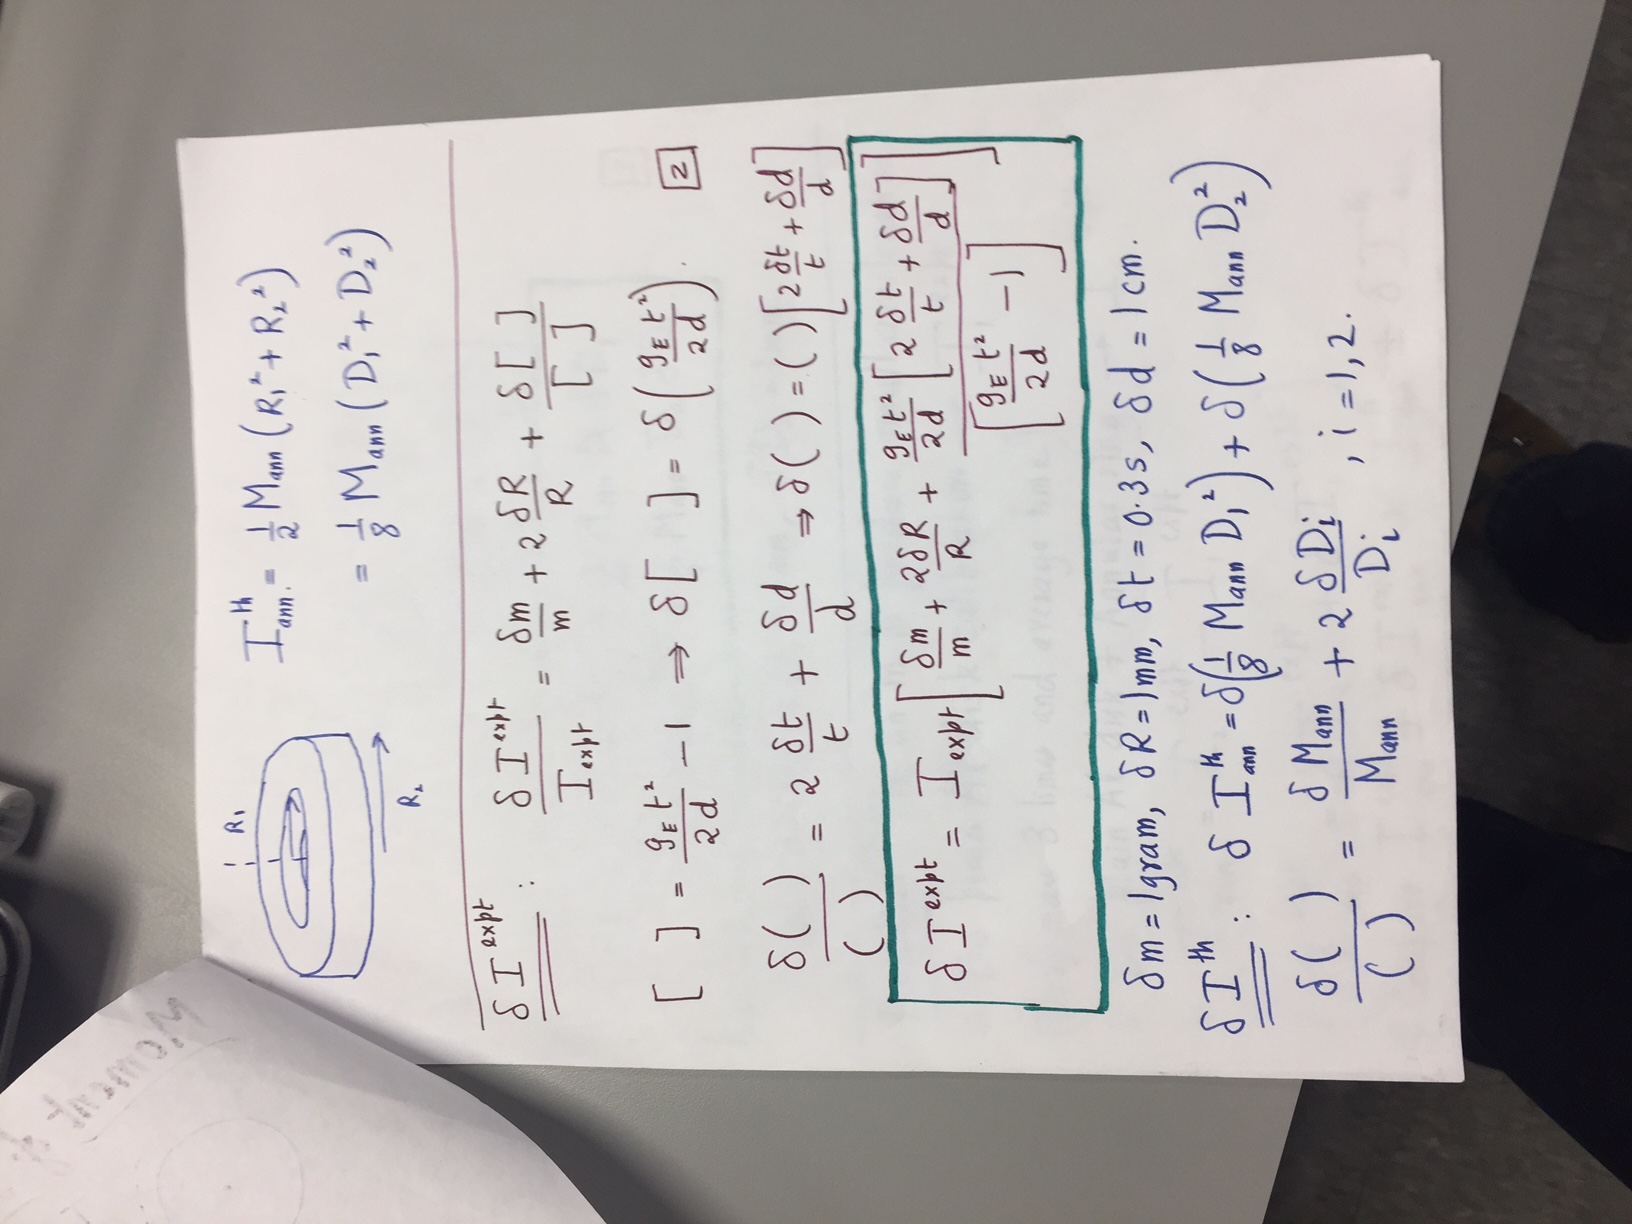 Moment
R₁
R₂
I_ann.^th = 1/2 M_ann (R₁² + R₂²)
= 1/8 M_ann (D₁² + D₂²)
δI^expt : δI^expt / I_expt = δm/m + 2 δR/R + δ[ ]/[ ]
[ ] = g_E t²/2d − 1 ⇒ δ[ ] = δ(g_E t²/2d).
2
δ( )/( ) = 2 δt/t + δd/d ⇒ δ( ) = ( )[2 δt/t + δd/d]
δI^expt = I_expt [δm/m + 2δR/R + g_E t²/2d [2 δt/t + δd/d] / [g_E t²/2d − 1]]
δm = 1gram, δR = 1mm, δt = 0.3s, δd = 1cm.
δI^th : δI_ann^th = δ(1/8 M_ann D₁²) + δ(1/8 M_ann D₂²)
δ( )/( ) = δM_ann/M_ann + 2 δD_i/D_i , i = 1, 2.